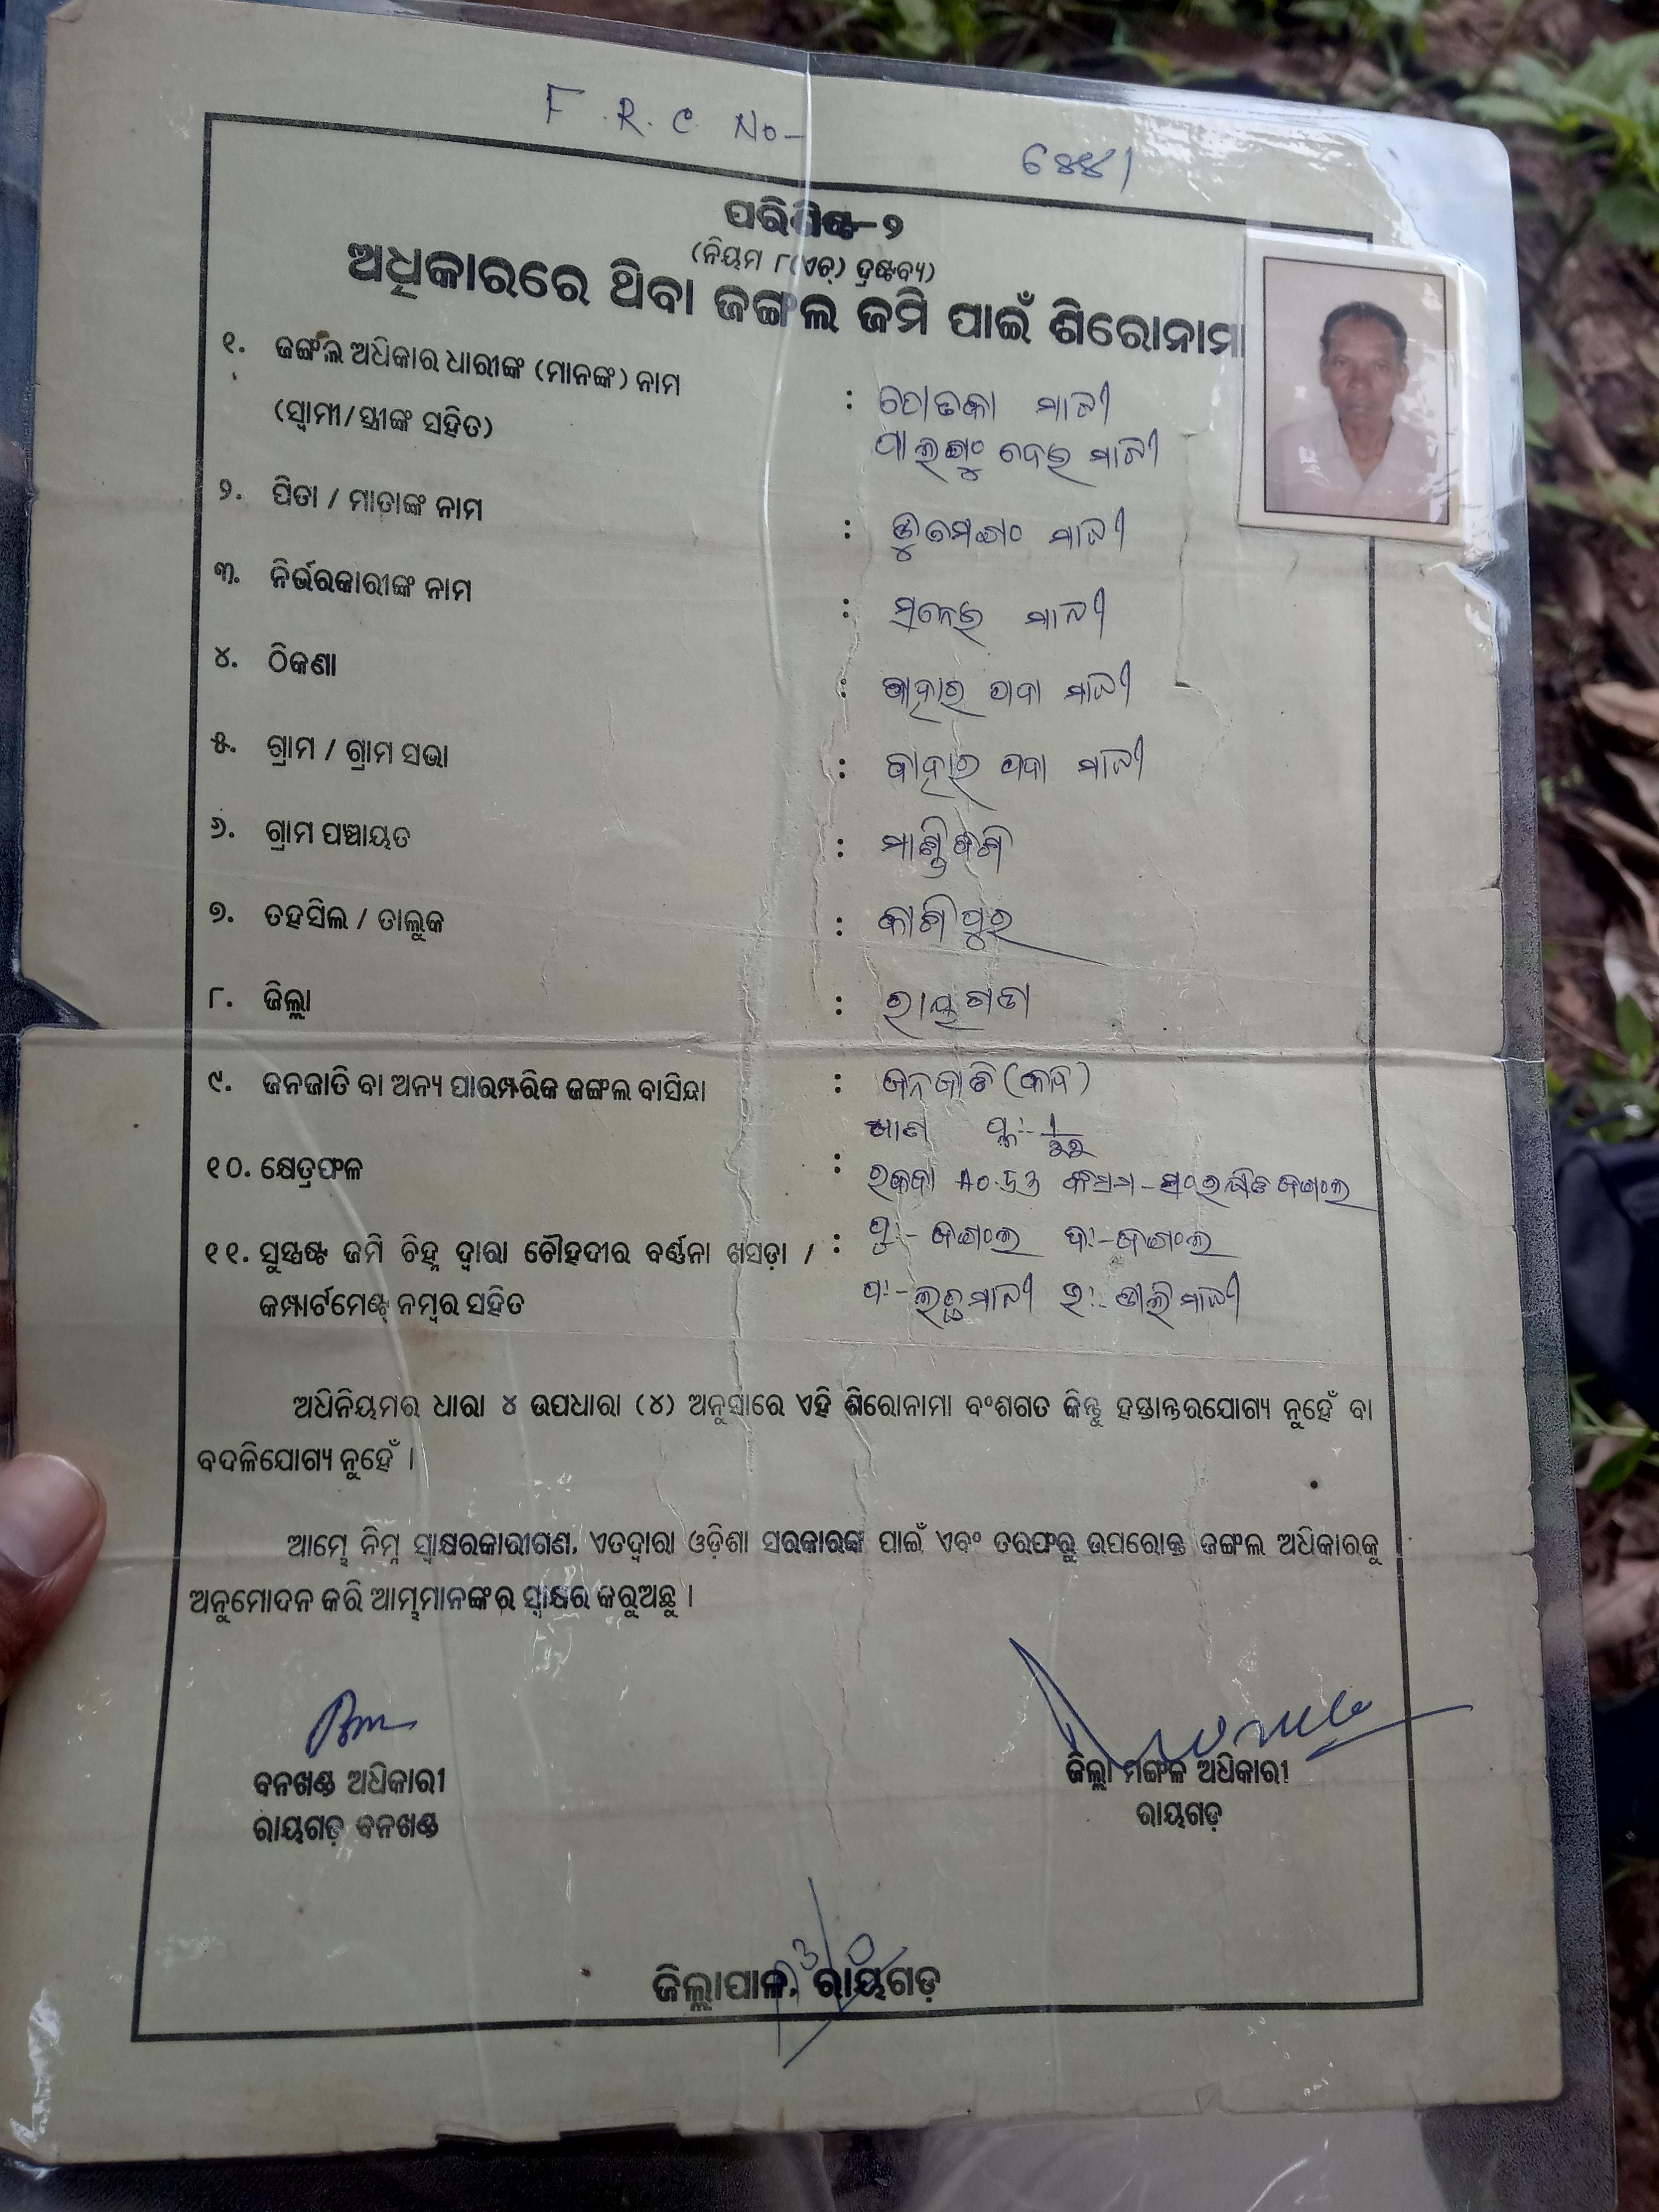 F. R. C. No- ୬୫୫୧
ପରିଶିଷ୍ଟ-୨
(ନିୟମ ୮(ଏଚ୍) ଦ୍ରଷ୍ଟବ୍ୟ)
ଅଧିକାରରେ ଥିବା ଜଙ୍ଗଲ ଜମି ପାଇଁ ଶିରୋନାମା
୧. ଜଙ୍ଗଲ ଅଧିକାର ଧାରୀଙ୍କ (ମାନଙ୍କ) ନାମ : ମାଝୀ
(ସ୍ୱାମୀ/ସ୍ତ୍ରୀଙ୍କ ସହିତ) ଦେଇ ମାଝୀ
୨. ପିତା / ମାତାଙ୍କ ନାମ : ମାଝୀ
୩. ନିର୍ଭରକାରୀଙ୍କ ନାମ : ମାଝୀ
୪. ଠିକଣା : ପଦା ମାଝୀ
୫. ଗ୍ରାମ / ଗ୍ରାମ ସଭା : ପଦା ମାଝୀ
୬. ଗ୍ରାମ ପଞ୍ଚାୟତ :
୭. ତହସିଲ / ତାଲୁକ : କାଶିପୁର
୮. ଜିଲ୍ଲା : ରାୟଗଡା
୯. ଜନଜାତି ବା ଅନ୍ୟ ପାରମ୍ପରିକ ଜଙ୍ଗଲ ବାସିନ୍ଦା : ଜନଜାତି (କନ୍ଧ)
୧୦. କ୍ଷେତ୍ରଫଳ : ରକବା A0.53 କିସମ-ସଂରକ୍ଷିତ ଜଙ୍ଗଲ
୧୧. ସୁସ୍ପଷ୍ଟ ଜମି ଚିହ୍ନ ଦ୍ୱାରା ଚୌହଦୀର ବର୍ଣ୍ଣନା ଖସଡ଼ା / : ପୂଃ- ଜଙ୍ଗଲ ଦଃ-ଜଙ୍ଗଲ
କମ୍ପାର୍ଟମେଣ୍ଟ ନମ୍ବର ସହିତ ପଃ- ମାଝୀ ଉଃ- ମାଝୀ
ଅଧିନିୟମର ଧାରା ୪ ଉପଧାରା (୪) ଅନୁସାରେ ଏହି ଶିରୋନାମା ବଂଶଗତ କିନ୍ତୁ ହସ୍ତାନ୍ତରଯୋଗ୍ୟ ନୁହେଁ ବା
ବଦଳିଯୋଗ୍ୟ ନୁହେଁ ।
ଆମ୍ଭେ ନିମ୍ନ ସ୍ୱାକ୍ଷରକାରୀଗଣ, ଏତଦ୍ୱାରା ଓଡ଼ିଶା ସରକାରଙ୍କ ପାଇଁ ଏବଂ ତରଫରୁ ଉପରୋକ୍ତ ଜଙ୍ଗଲ ଅଧିକାରକୁ
ଅନୁମୋଦନ କରି ଆମ୍ଭମାନଙ୍କର ସ୍ୱାକ୍ଷର କରୁଅଛୁ ।
ବନଖଣ୍ଡ ଅଧିକାରୀ
ରାୟଗଡ଼ ବନଖଣ୍ଡ
ଜିଲ୍ଲା ମଙ୍ଗଳ ଅଧିକାରୀ
ରାୟଗଡ଼
ଜିଲ୍ଲାପାଳ, ରାୟଗଡ଼